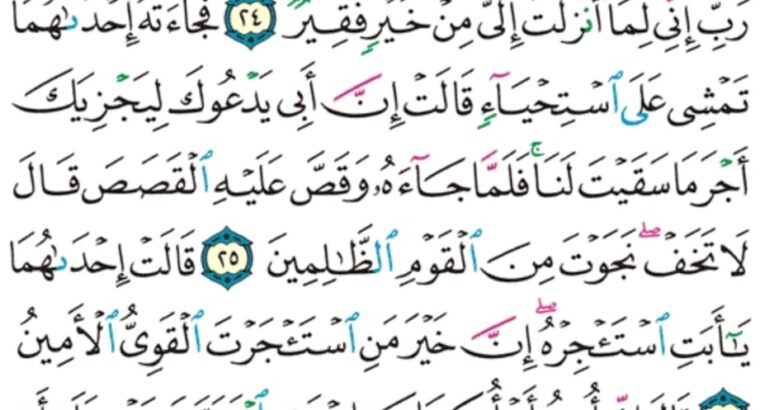 رَبِّ إِنِّي لِمَا أَنزَلْتَ إِلَيَّ مِنْ خَيْرٍ فَقِيرٌ ٢٤ فَجَاءَتْهُ إِحْدَىٰهُمَا
تَمْشِى عَلَى ٱسْتِحْيَآءٍ قَالَتْ إِنَّ أَبِى يَدْعُوكَ لِيَجْزِيَكَ
أَجْرَ مَا سَقَيْتَ لَنَا ۚ فَلَمَّا جَآءَهُۥ وَقَصَّ عَلَيْهِ ٱلْقَصَصَ قَالَ
لَا تَخَفْ ۖ نَجَوْتَ مِنَ ٱلْقَوْمِ ٱلظَّـٰلِمِينَ ٢٥ قَالَتْ إِحْدَىٰهُمَا
يَـٰٓأَبَتِ ٱسْتَـْٔجِرْهُ ۖ إِنَّ خَيْرَ مَنِ ٱسْتَـْٔجَرْتَ ٱلْقَوِىُّ ٱلْأَمِينُ